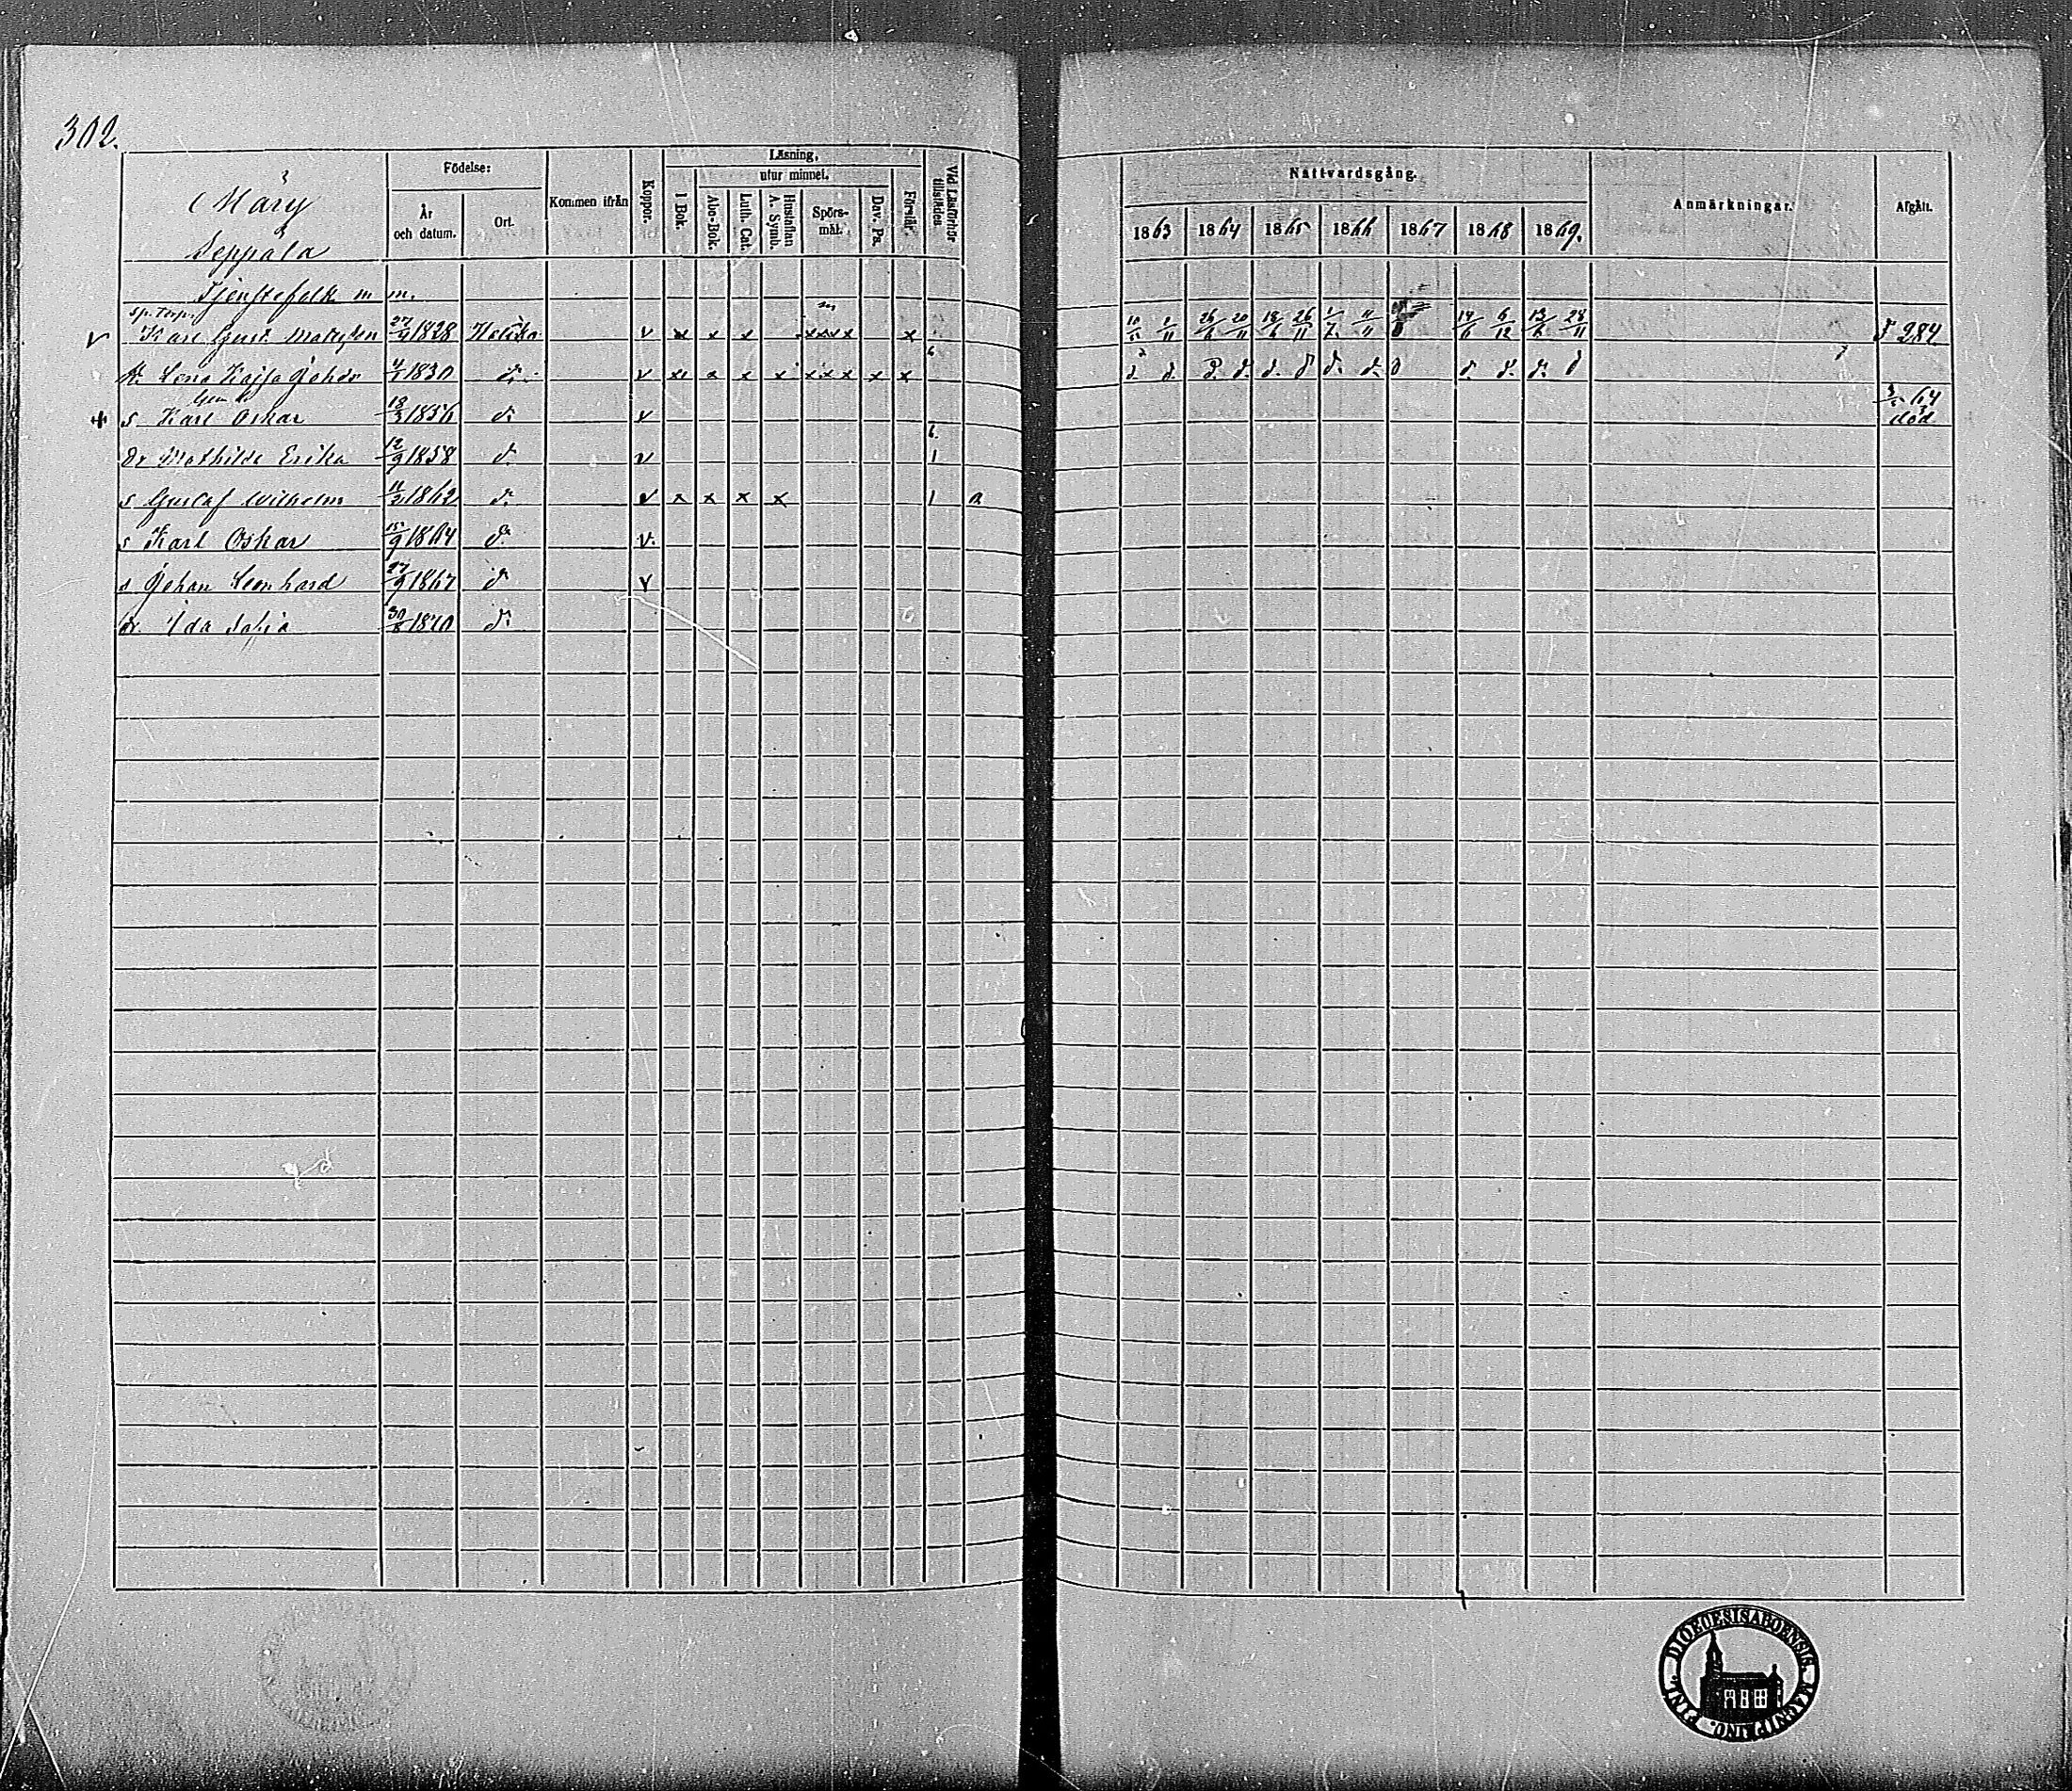 302.
Märy
Seppälä
Födelse:
År och datum.
Ort.
Kommen ifrån
Koppor.
Läsning,
utur minnet.
I Bok.
Abc-Bok.
Luth. Cat.
Hustaflan A. Symb.
Spörs-mål.
Dav. Ps.
Förstår.
Vid Läsförhör tillstädes
Nattvardsgång.
1863 1864 1865 1866 1867 1868 1869.
Anmärkningar.
Afgått.
Tjenstefolk m m.
Sp. Torp.
v Karl Gust. 27/4 1828 v x x x xxxx x 26/6 20/11 18/6 26/11 14/6 6/12 13/6 28/11 284
h. Lena Kajsa Johdr 4/1 1830 d:o v x x x x xxx x x d. d. d. d. d. d. d. d. d. d. d. d.
+ s Karl Oskar 18/3 1856 d:o v 64 död
Dr Mathilda Erika 12/9 1858 d:o v 1
s Gustaf Wilhelm 11/2 1862 d:o v x x x x 1 a
s Karl Oskar 15/9 1864 d:o v.
s Johan Leonhard 27/9 1867 d:o v
dr. Ida Sofia 30/8 1870 d:o
FINL. DIOECESIS ABOENSIS. MAGNI PRINC.